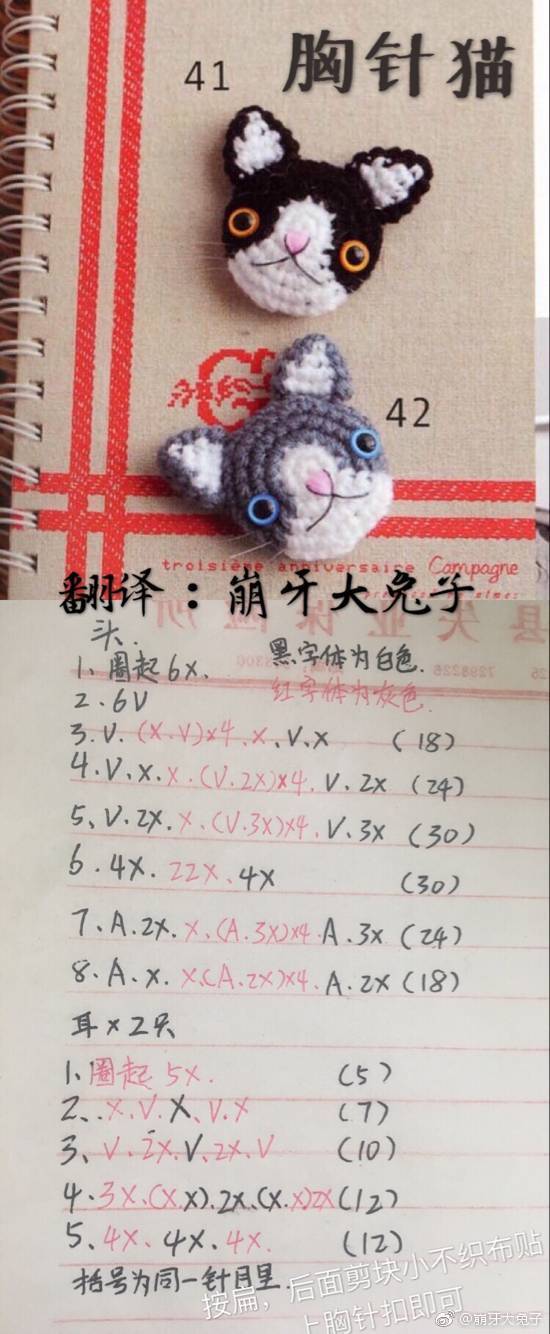 41
胸针猫
42
troisième anniversaire Campagne
翻译：崩牙大兔子
县失业保险所
头.
黑字体为白色.
1. 圈起6X.
红字体为灰色.
2. 6V
3. V. (X.V)×4. X. V. X (18)
4. V. X. X. (V.2X)×4. V. 2X (24)
5、V. 2X. X. (V.3X)×4. V. 3X (30)
6. 4X. 22X、4X (30)
7. A. 2X. X. (A.3X)×4. A. 3X (24)
8. A. X. X.(A.2X)×4. A. 2X (18)
耳×2只
1、圈起5X. (5)
2、. X. V. X、V. X (7)
3、V. 2X. V. 2X. V (10)
4. 3X. (X.X). 2X. (X.X)2X (12)
5、4X、4X. 4X. (12)
括号为同一针目里.
按扁，后面剪块小不织布贴
上胸针扣即可
@崩牙大兔子